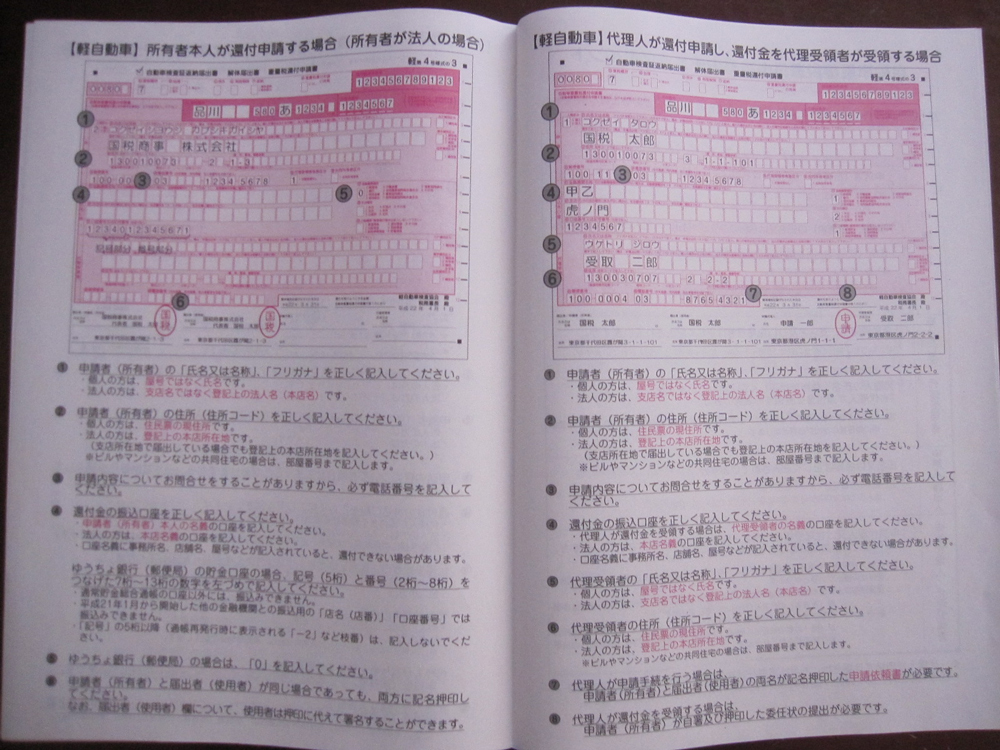 【軽自動車】所有者本人が還付申請する場合（所有者が法人の場合）
軽第4号様式の3
自動車検査証返納届出書 解体届出書 重量税還付申請書
0080
7
1234567889123
品川 580 あ 1234 1234567
①
国税商事 株式会社
②
130010073 2 1-3
③
12345678
④
⑤
0
1234012345671
⑥
国税
国税
① 申請者（所有者）の「氏名又は名称」、「フリガナ」を正しく記入してください。
・個人の方は、屋号ではなく氏名です。
・法人の方は、支店名ではなく登記上の法人名（本店名）です。
② 申請者（所有者）の住所（住所コード）を正しく記入してください。
・個人の方は、住民票の現住所です。
・法人の方は、登記上の本店所在地です。
（支店所在地で届出している場合でも登記上の本店所在地を記入してください。）
※ビルやマンションなどの共同住宅の場合は、部屋番号まで記入します。
③ 申請内容についてお問合せをすることがありますから、必ず電話番号を記入して
ください。
④ 還付金の振込口座を正しく記入してください。
・申請者（所有者）本人の名義の口座を記入してください。
・法人の方は、本店名義の口座を記入してください。
・口座名義に事務所名、店舗名、屋号などが記入されていると、還付できない場合があります。
ゆうちょ銀行（郵便局）の貯金口座の場合、記号（5桁）と番号（2桁～8桁）を
つなげた7桁～13桁の数字を左づめで記入してください。
・通常貯金総合通帳の口座以外には、振込みできません。
・平成21年1月から開始した他の金融機関との振込用の「店名（店番）」「口座番号」では
振込みできません。
・「記号」の5桁以降（通帳再発行時に表示される「-2」など枝番）は、記入しないでくだ
さい。
⑤ ゆうちょ銀行（郵便局）の場合は、「0」を記入してください。
⑥ 申請者（所有者）と届出者（使用者）が同じ場合であっても、両方に記名押印し
てください。
なお、届出者（使用者）欄について、使用者は押印に代えて署名することができます。
【軽自動車】代理人が還付申請し、還付金を代理受領者が受領する場合
軽第4号様式の3
自動車検査証返納届出書 解体届出書 重量税還付申請書
0080
7
1234567889123
品川 580 あ 1234 1234567
①
コクゼイ タロウ
国税 太郎
②
130010073 3 1-1-101
③
100 11 03 12345678
④
甲乙
虎ノ門
1234567
⑤
ウケトリ ジロウ
受取 二郎
⑥
130030707 2 2-2
⑦
100-0004 03 87654321
⑧
国税 太郎
国税 太郎
申請 一郎
申請
受取 二郎
① 申請者（所有者）の「氏名又は名称」、「フリガナ」を正しく記入してください。
・個人の方は、屋号ではなく氏名です。
・法人の方は、支店名ではなく登記上の法人名（本店名）です。
② 申請者（所有者）の住所（住所コード）を正しく記入してください。
・個人の方は、住民票の現住所です。
・法人の方は、登記上の本店所在地です。
（支店所在地で届出している場合でも登記上の本店所在地を記入してください。）
※ビルやマンションなどの共同住宅の場合は、部屋番号まで記入します。
③ 申請内容についてお問合せをすることがありますから、必ず電話番号を記入して
ください。
④ 還付金の振込口座を正しく記入してください。
・代理人が還付金を受領する場合は、代理受領者の名義の口座を記入してください。
・法人の方は、本店名義の口座を記入してください。
・口座名義に事務所名、店舗名、屋号などが記入されていると、還付できない場合があります。
⑤ 代理受領者の「氏名又は名称」、「フリガナ」を正しく記入してください。
・個人の方は、屋号ではなく氏名です。
・法人の方は、支店名ではなく登記上の法人名（本店名）です。
⑥ 代理受領者の住所（住所コード）を正しく記入してください。
・個人の方は、住民票の現住所です。
・法人の方は、登記上の本店所在地です。
※ビルやマンションなどの共同住宅の場合は、部屋番号まで記入します。
⑦ 代理人が申請手続を行う場合は、
申請者（所有者）と届出者（使用者）の両名が記名押印した申請依頼書が必要です。
⑧ 代理人が還付金を受領する場合は、
申請者（所有者）が自署及び押印した委任状の提出が必要です。